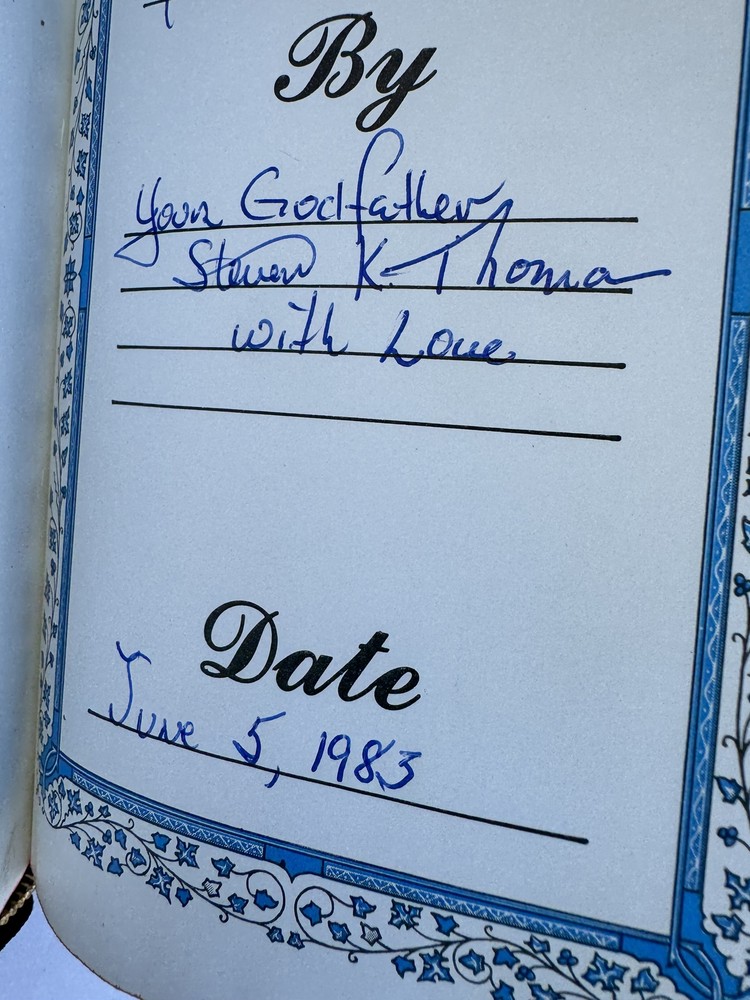 By
Your Godfather,
Steven K. Thoma
with Love
Date
June 5, 1983